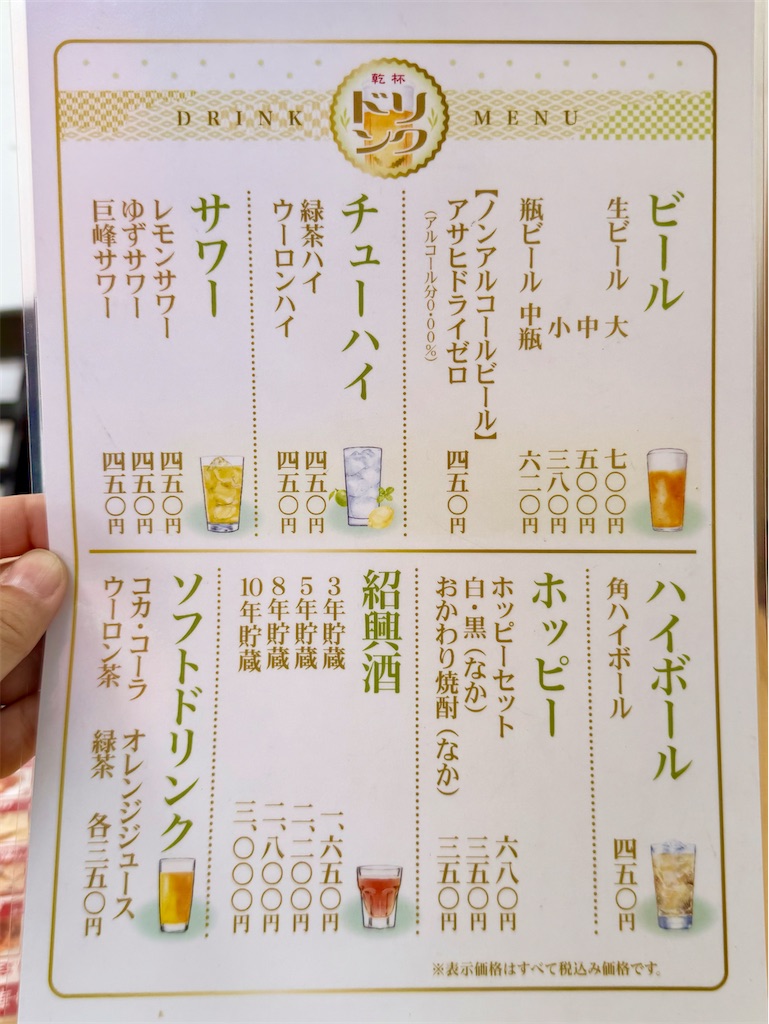 乾杯
ドリンク
DRINK MENU
ビール
生ビール 大 七〇〇円
中 五〇〇円
小 三八〇円
瓶ビール 中瓶 六二〇円
【ノンアルコールビール】
アサヒドライゼロ 四五〇円
（アルコール分0・00％）
チューハイ
緑茶ハイ 四五〇円
ウーロンハイ 四五〇円
サワー
レモンサワー 四五〇円
ゆずサワー 四五〇円
巨峰サワー 四五〇円
ハイボール
角ハイボール 四五〇円
ホッピー
ホッピーセット 六八〇円
白・黒（なか） 三五〇円
おかわり焼酎（なか） 三五〇円
紹興酒
3年貯蔵 一、六五〇円
5年貯蔵 二、二〇〇円
8年貯蔵 二、八〇〇円
10年貯蔵 三、〇〇〇円
ソフトドリンク
コカ・コーラ オレンジジュース
ウーロン茶 緑茶 各三五〇円
※表示価格はすべて税込み価格です。